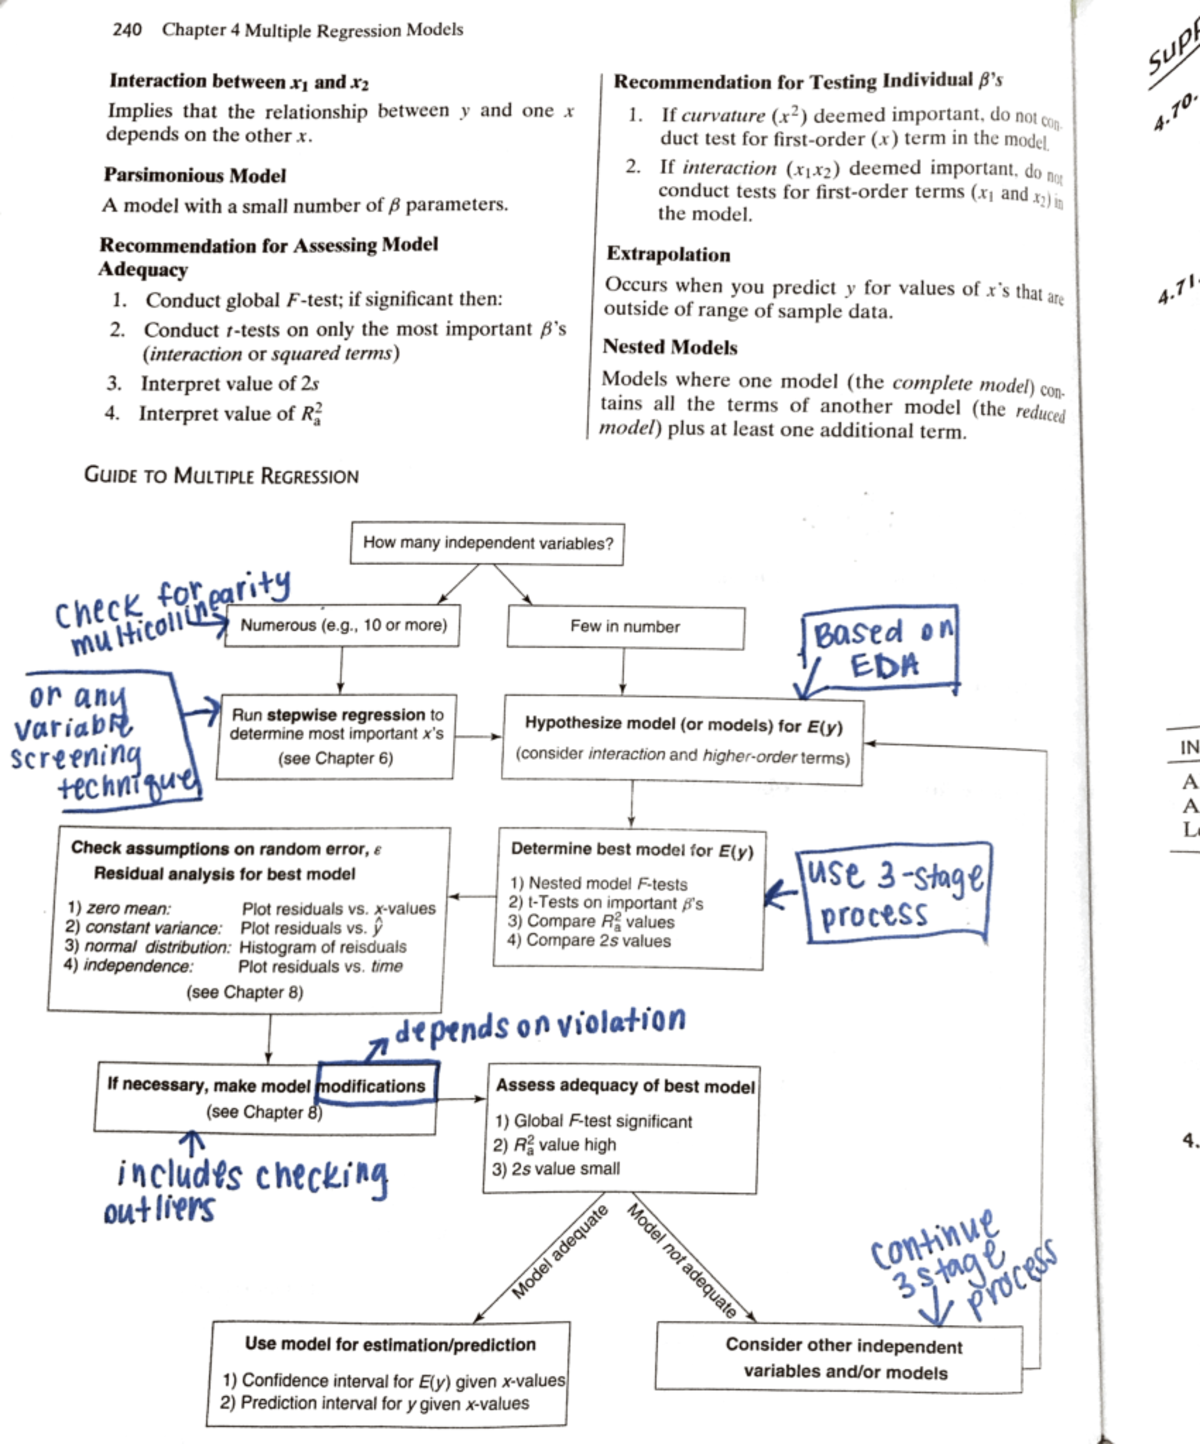 240 Chapter 4 Multiple Regression Models
Interaction between x₁ and x₂
Implies that the relationship between y and one x
depends on the other x.
Parsimonious Model
A model with a small number of β parameters.
Recommendation for Assessing Model
Adequacy
1. Conduct global F-test; if significant then:
2. Conduct t-tests on only the most important β's
(interaction or squared terms)
3. Interpret value of 2s
4. Interpret value of R²ₐ
Recommendation for Testing Individual β's
1. If curvature (x²) deemed important, do not con-
duct test for first-order (x) term in the model.
2. If interaction (x₁x₂) deemed important, do not
conduct tests for first-order terms (x₁ and x₂) in
the model.
Extrapolation
Occurs when you predict y for values of x's that are
outside of range of sample data.
Nested Models
Models where one model (the complete model) con-
tains all the terms of another model (the reduced
model) plus at least one additional term.
GUIDE TO MULTIPLE REGRESSION
How many independent variables?
check for
multicollinearity
Numerous (e.g., 10 or more)
Few in number
Based on
EDA
or any
variable
screening
technique
Run stepwise regression to
determine most important x's
(see Chapter 6)
Hypothesize model (or models) for E(y)
(consider interaction and higher-order terms)
Check assumptions on random error, ε
Residual analysis for best model
1) zero mean: Plot residuals vs. x-values
2) constant variance: Plot residuals vs. ŷ
3) normal distribution: Histogram of reisduals
4) independence: Plot residuals vs. time
(see Chapter 8)
Determine best model for E(y)
1) Nested model F-tests
2) t-Tests on important β's
3) Compare R²ₐ values
4) Compare 2s values
use 3-stage
process
depends on violation
If necessary, make model modifications
(see Chapter 8)
includes checking
outliers
Assess adequacy of best model
1) Global F-test significant
2) R²ₐ value high
3) 2s value small
Model adequate
Model not adequate
continue
3 stage
process
Use model for estimation/prediction
1) Confidence interval for E(y) given x-values
2) Prediction interval for y given x-values
Consider other independent
variables and/or models
4.70.
4.71.
IN
A
A
4.